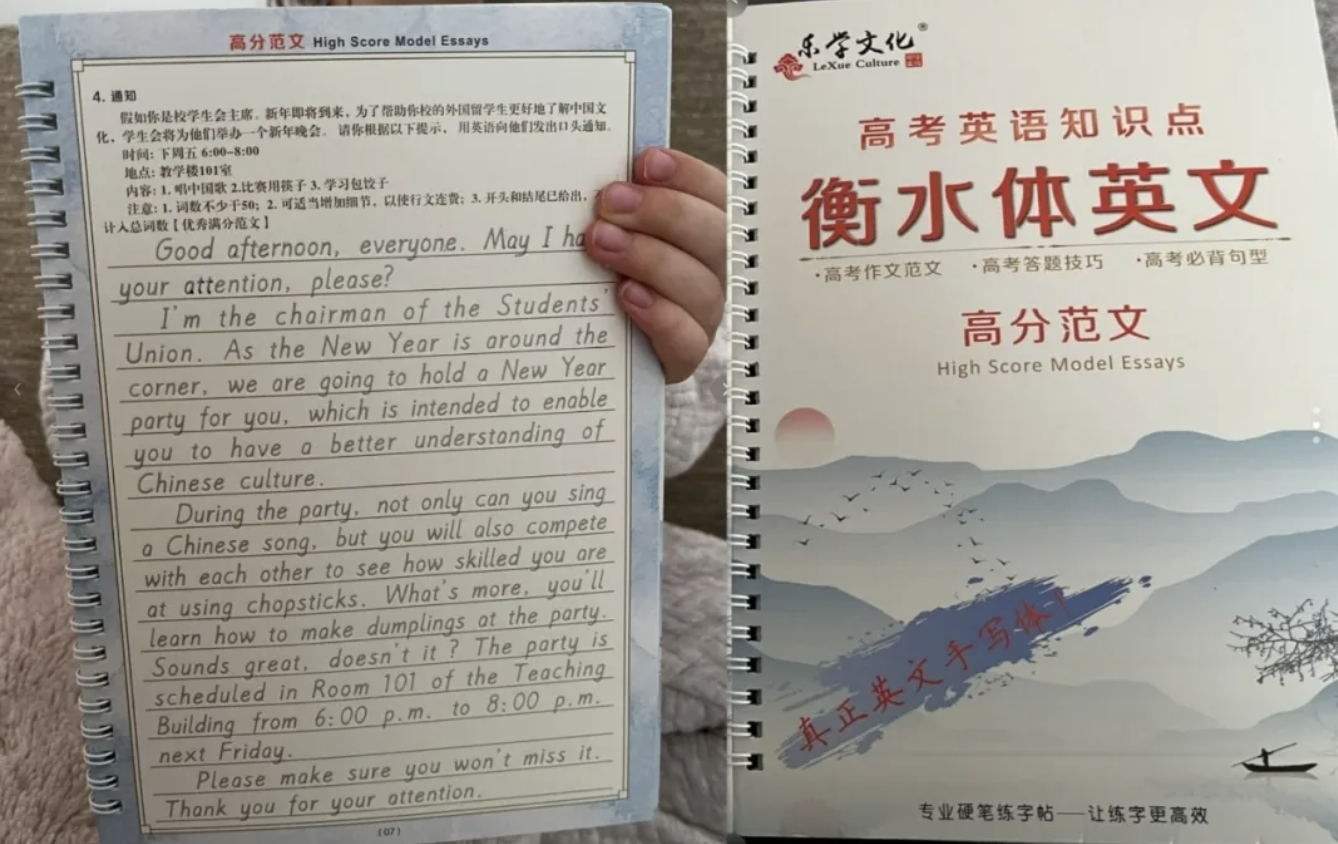 高分范文 High Score Model Essays
4. 通知
假如你是校学生会主席。新年即将到来,为了帮助你校的外国留学生更好地了解中国文
化,学生会将为他们举办一个新年晚会。请你根据以下提示,用英语向他们发出口头通知。
时间:下周五 6:00-8:00
地点:教学楼101室
内容:1. 唱中国歌 2.比赛用筷子 3. 学习包饺子
注意:1. 词数不少于50;2. 可适当增加细节,以使行文连贯;3. 开头和结尾已给出,
计入总词数【优秀满分范文】
Good afternoon, everyone. May I
your attention, please?
I'm the chairman of the Students'
Union. As the New Year is around the
corner, we are going to hold a New Year
party for you, which is intended to enable
you to have a better understanding of
Chinese culture.
During the party, not only can you sing
a Chinese song, but you will also compete
with each other to see how skilled you are
at using chopsticks. What's more, you'll
learn how to make dumplings at the party.
Sounds great, doesn't it ? The party is
scheduled in Room 101 of the Teaching
Building from 6:00 p.m. to 8:00 p.m.
next Friday.
Please make sure you won't miss it.
Thank you for your attention.
(07)
乐学文化®
LeXue Culture
高考英语知识点
衡水体英文
·高考作文范文 ·高考答题技巧 ·高考必背句型
高分范文
High Score Model Essays
真正英文手写体!
专业硬笔练字帖——让练字更高效